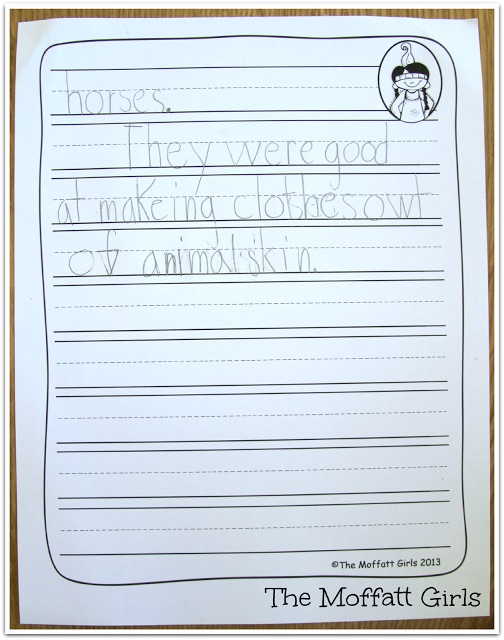 horses.
They were good
at makeing clothes owt
of animal skin.
©The Moffatt Girls 2013
The Moffatt Girls